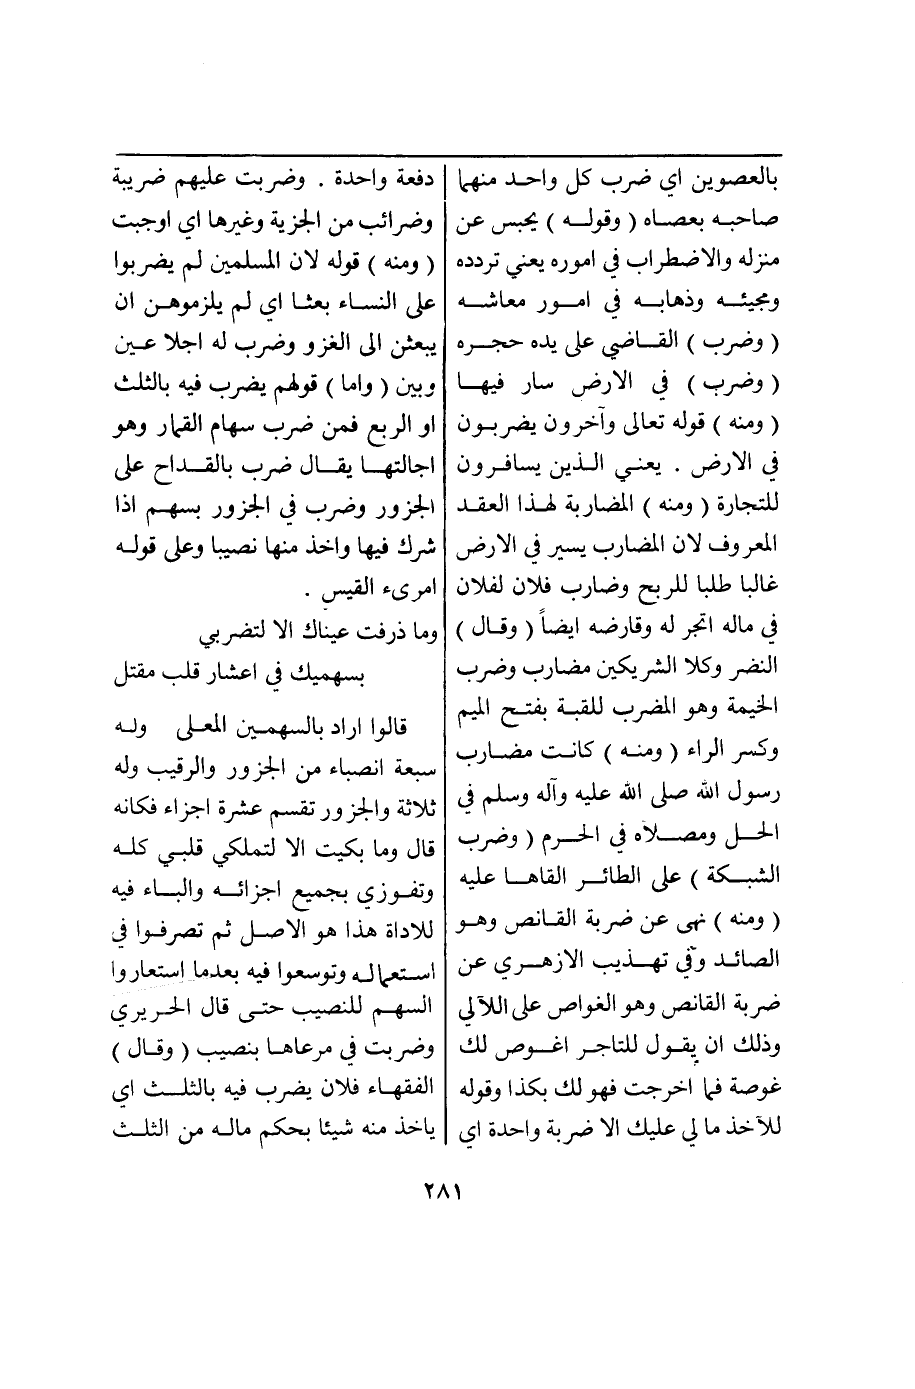 بالعصوين اي ضرب كل واحد منهما
صاحبه بعصاه ( وقوله ) يحبس عن
منزله والاضطراب في اموره يعني تردده
ومجيئه وذهابه في امور معاشه
( وضرب ) القاضي على يده حجره
( وضرب ) في الارض سار فيها
( ومنه ) قوله تعالى وآخرون يضربون
في الارض . يعني الذين يسافرون
للتجارة ( ومنه ) المضاربة لهذا العقد
المعروف لان المضارب يسير في الارض
غالبا طلبا للربح وضارب فلان لفلان
في ماله اتجر له وقارضه ايضاً ( وقال )
النضر وكلا الشريكين مضارب وضرب
الخيمة وهو المضرب للقبة بفتح الميم
وكسر الراء ( ومنه ) كانت مضارب
رسول الله صلى الله عليه وآله وسلم في
الحل ومصلاه في الحرم ( وضرب
الشبكة ) على الطائر القاها عليه
( ومنه ) نهى عن ضربة القانص وهو
الصائد وفي تهذيب الازهري عن
ضربة القانص وهو الغواص على اللآلي
وذلك ان يقول للتاجر اغوص لك
غوصة فما اخرجت فهو لك بكذا وقوله
للآخذ ما لي عليك الا ضربة واحدة اي
دفعة واحدة . وضربت عليهم ضريبة
وضرائب من الجزية وغيرها اي اوجبت
( ومنه ) قوله لان المسلمين لم يضربوا
على النساء بعثا اي لم يلزموهن ان
يبعثن الى الغزو وضرب له اجلا عين
وبين ( واما ) قولهم يضرب فيه بالثلث
او الربع فمن ضرب سهام القمار وهو
اجالتها يقال ضرب بالقداح على
الجزور وضرب في الجزور بسهم اذا
شرك فيها واخذ منها نصيبا وعلى قوله
امرىء القيس .
وما ذرفت عيناك الا لتضربي
بسهميك في اعشار قلب مقتل
قالوا اراد بالسهمين المعلى وله
سبعة انصباء من الجزور والرقيب وله
ثلاثة والجزور تقسم عشرة اجزاء فكانه
قال وما بكيت الا لتملكي قلبي كله
وتفوزي بجميع اجزائه والباء فيه
للاداة هذا هو الاصل ثم تصرفوا في
استعماله وتوسعوا فيه بعدما استعاروا
السهم للنصيب حتى قال الحريري
وضربت في مرعاها بنصيب ( وقال )
الفقهاء فلان يضرب فيه بالثلث اي
ياخذ منه شيئا بحكم ماله من الثلث
٢٨١